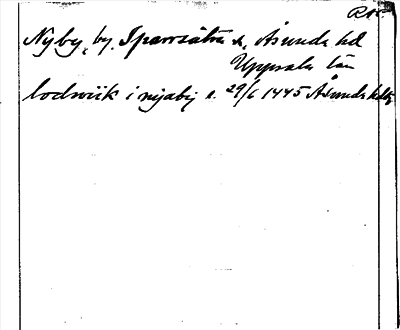 Nyby, by, Sparrsätra s., Åsunda hd
Uppsala län
lodwiik i nyabij s. 29/6 1445 Åsunda hdtg